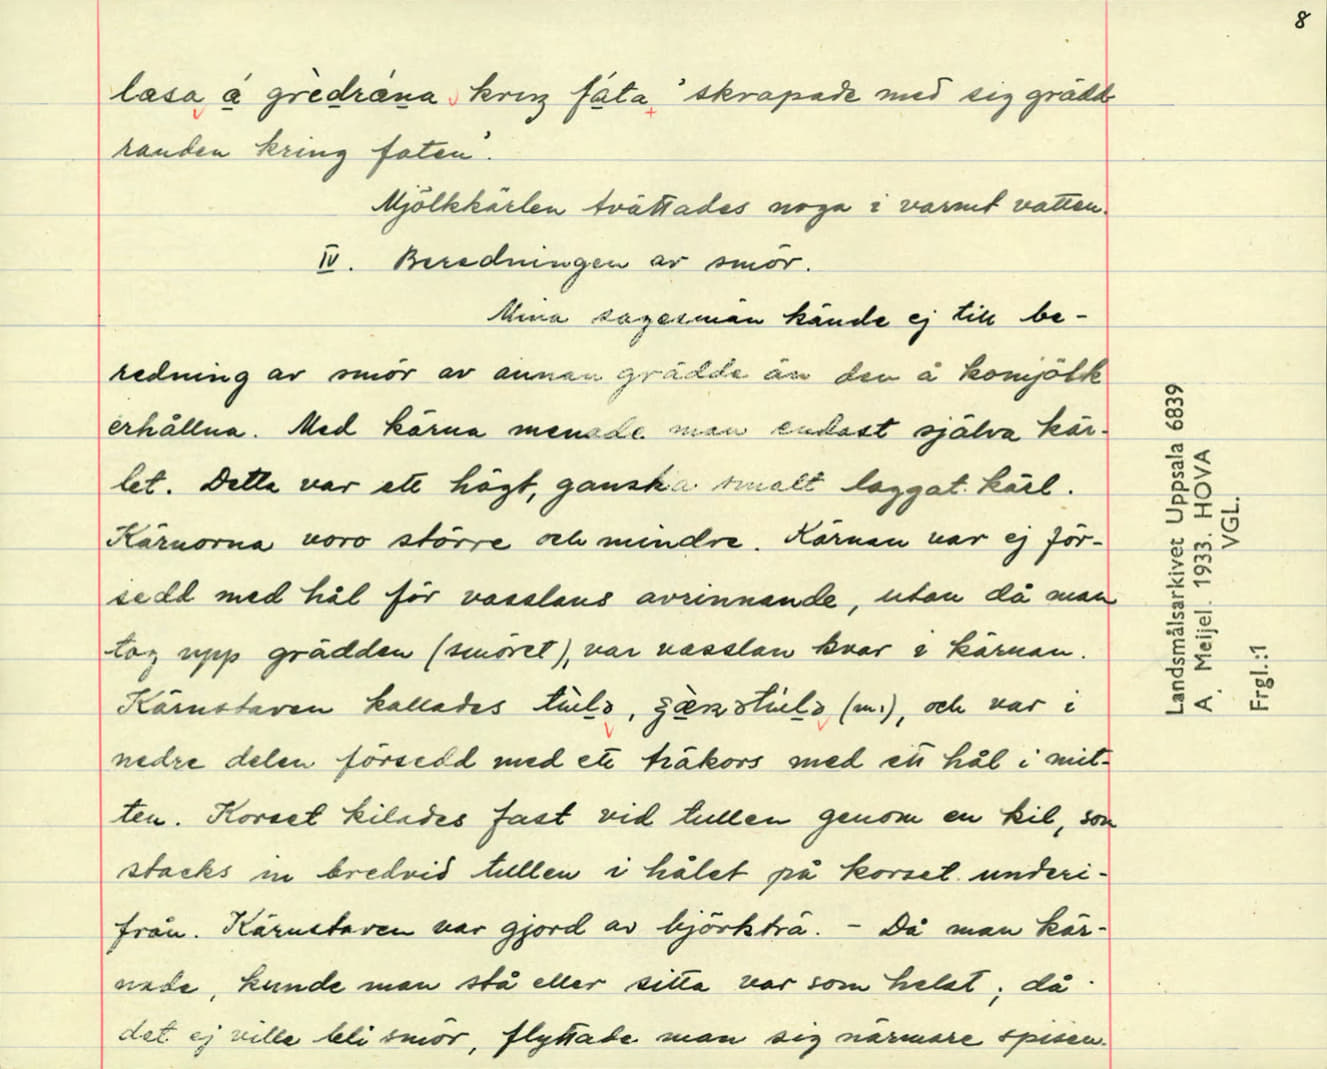 8
læsa á grèdrána kriŋ fáta 'skrapade med sig grädd-
randen kring faten'.
Mjölkkärlen tvättades noga i varmt vatten.
IV. Beredningen av smör.
Mina sagesmän kände ej till be-
redning av smör av annan grädde än den å komjölk
erhållna. Med kärna menade man endast själva kär-
let. Detta var ett högt, ganska smalt laggat kärl.
Kärnorna voro större och mindre. Kärnan var ej för-
sedd med hål för vasslans avrinnande, utan då man
tog upp grädden (smöret), var vasslan kvar i kärnan.
Kärnstaven kallades (m.), och var i
nedre delen försedd med ett träkors med ett hål i mit-
ten. Korset kilades fast vid tullen genom en kil, som
stacks in bredvid tullen i hålet på korset underi-
från. Kärnstaven var gjord av björkträ. - Då man kär-
nade, kunde man stå eller sitta var som helst; då
det ej ville bli smör, flyttade man sig närmare spisen.
Landsmålsarkivet Uppsala 6839
A. Meijel. 1933. HOVA
VGL.
Frgl.:1